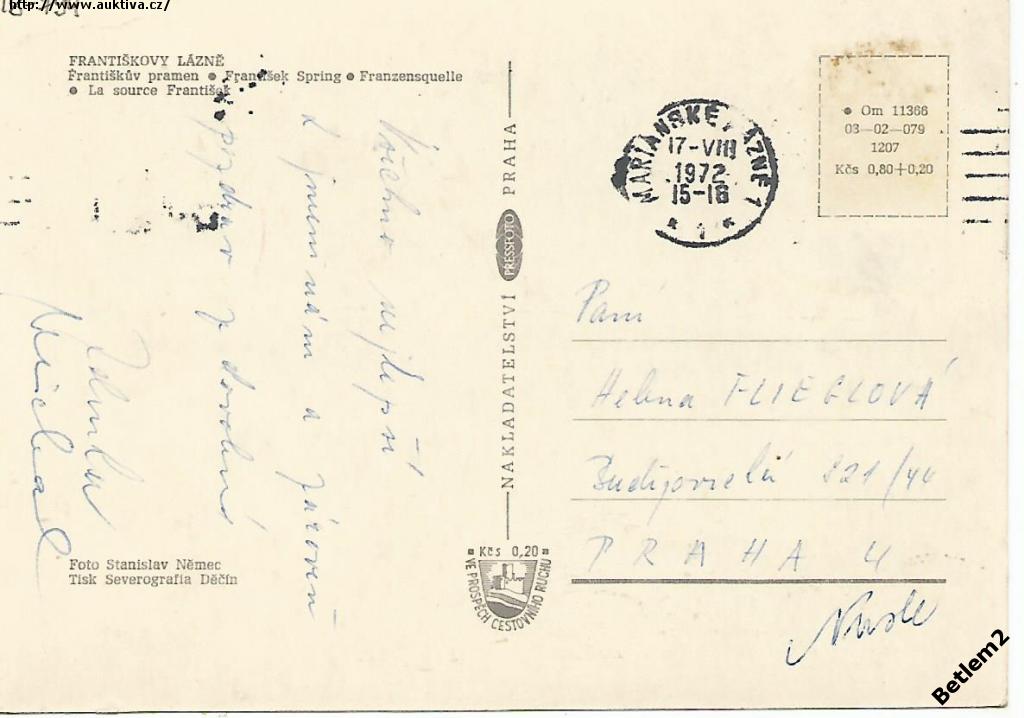 http://www.auktiva.cz/
FRANTIŠKOVY LÁZNĚ
Františkův pramen ● František Spring ● Franzensquelle
● La source František
Všechno nejlepší
k jmeninám a zároveň
pozdrav z dovolené
Zdenka
Michal
Foto Stanislav Němec
Tisk Severografia Děčín
NAKLADATELSTVÍ PRESSFOTO PRAHA
Kčs 0,20
VE PROSPĚCH CESTOVNÍHO RUCHU
MARIÁNSKÉ LÁZNĚ 1
17-VIII
1972
15-18
* 1 *
● Om 11366
03—02—079
1207
Kčs 0,80+0,20
Paní
Helena FLIEGLOVÁ
Budějovická 821/44
PRAHA 4
Nusle
Betlem2